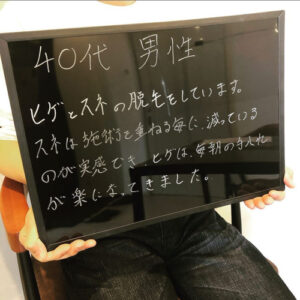 40代 男性
ヒゲとスネの脱毛をしています。
スネは施術を重ねる毎に、減っている
のが実感でき、ヒゲは、毎朝の手入れ
が楽になってきました。